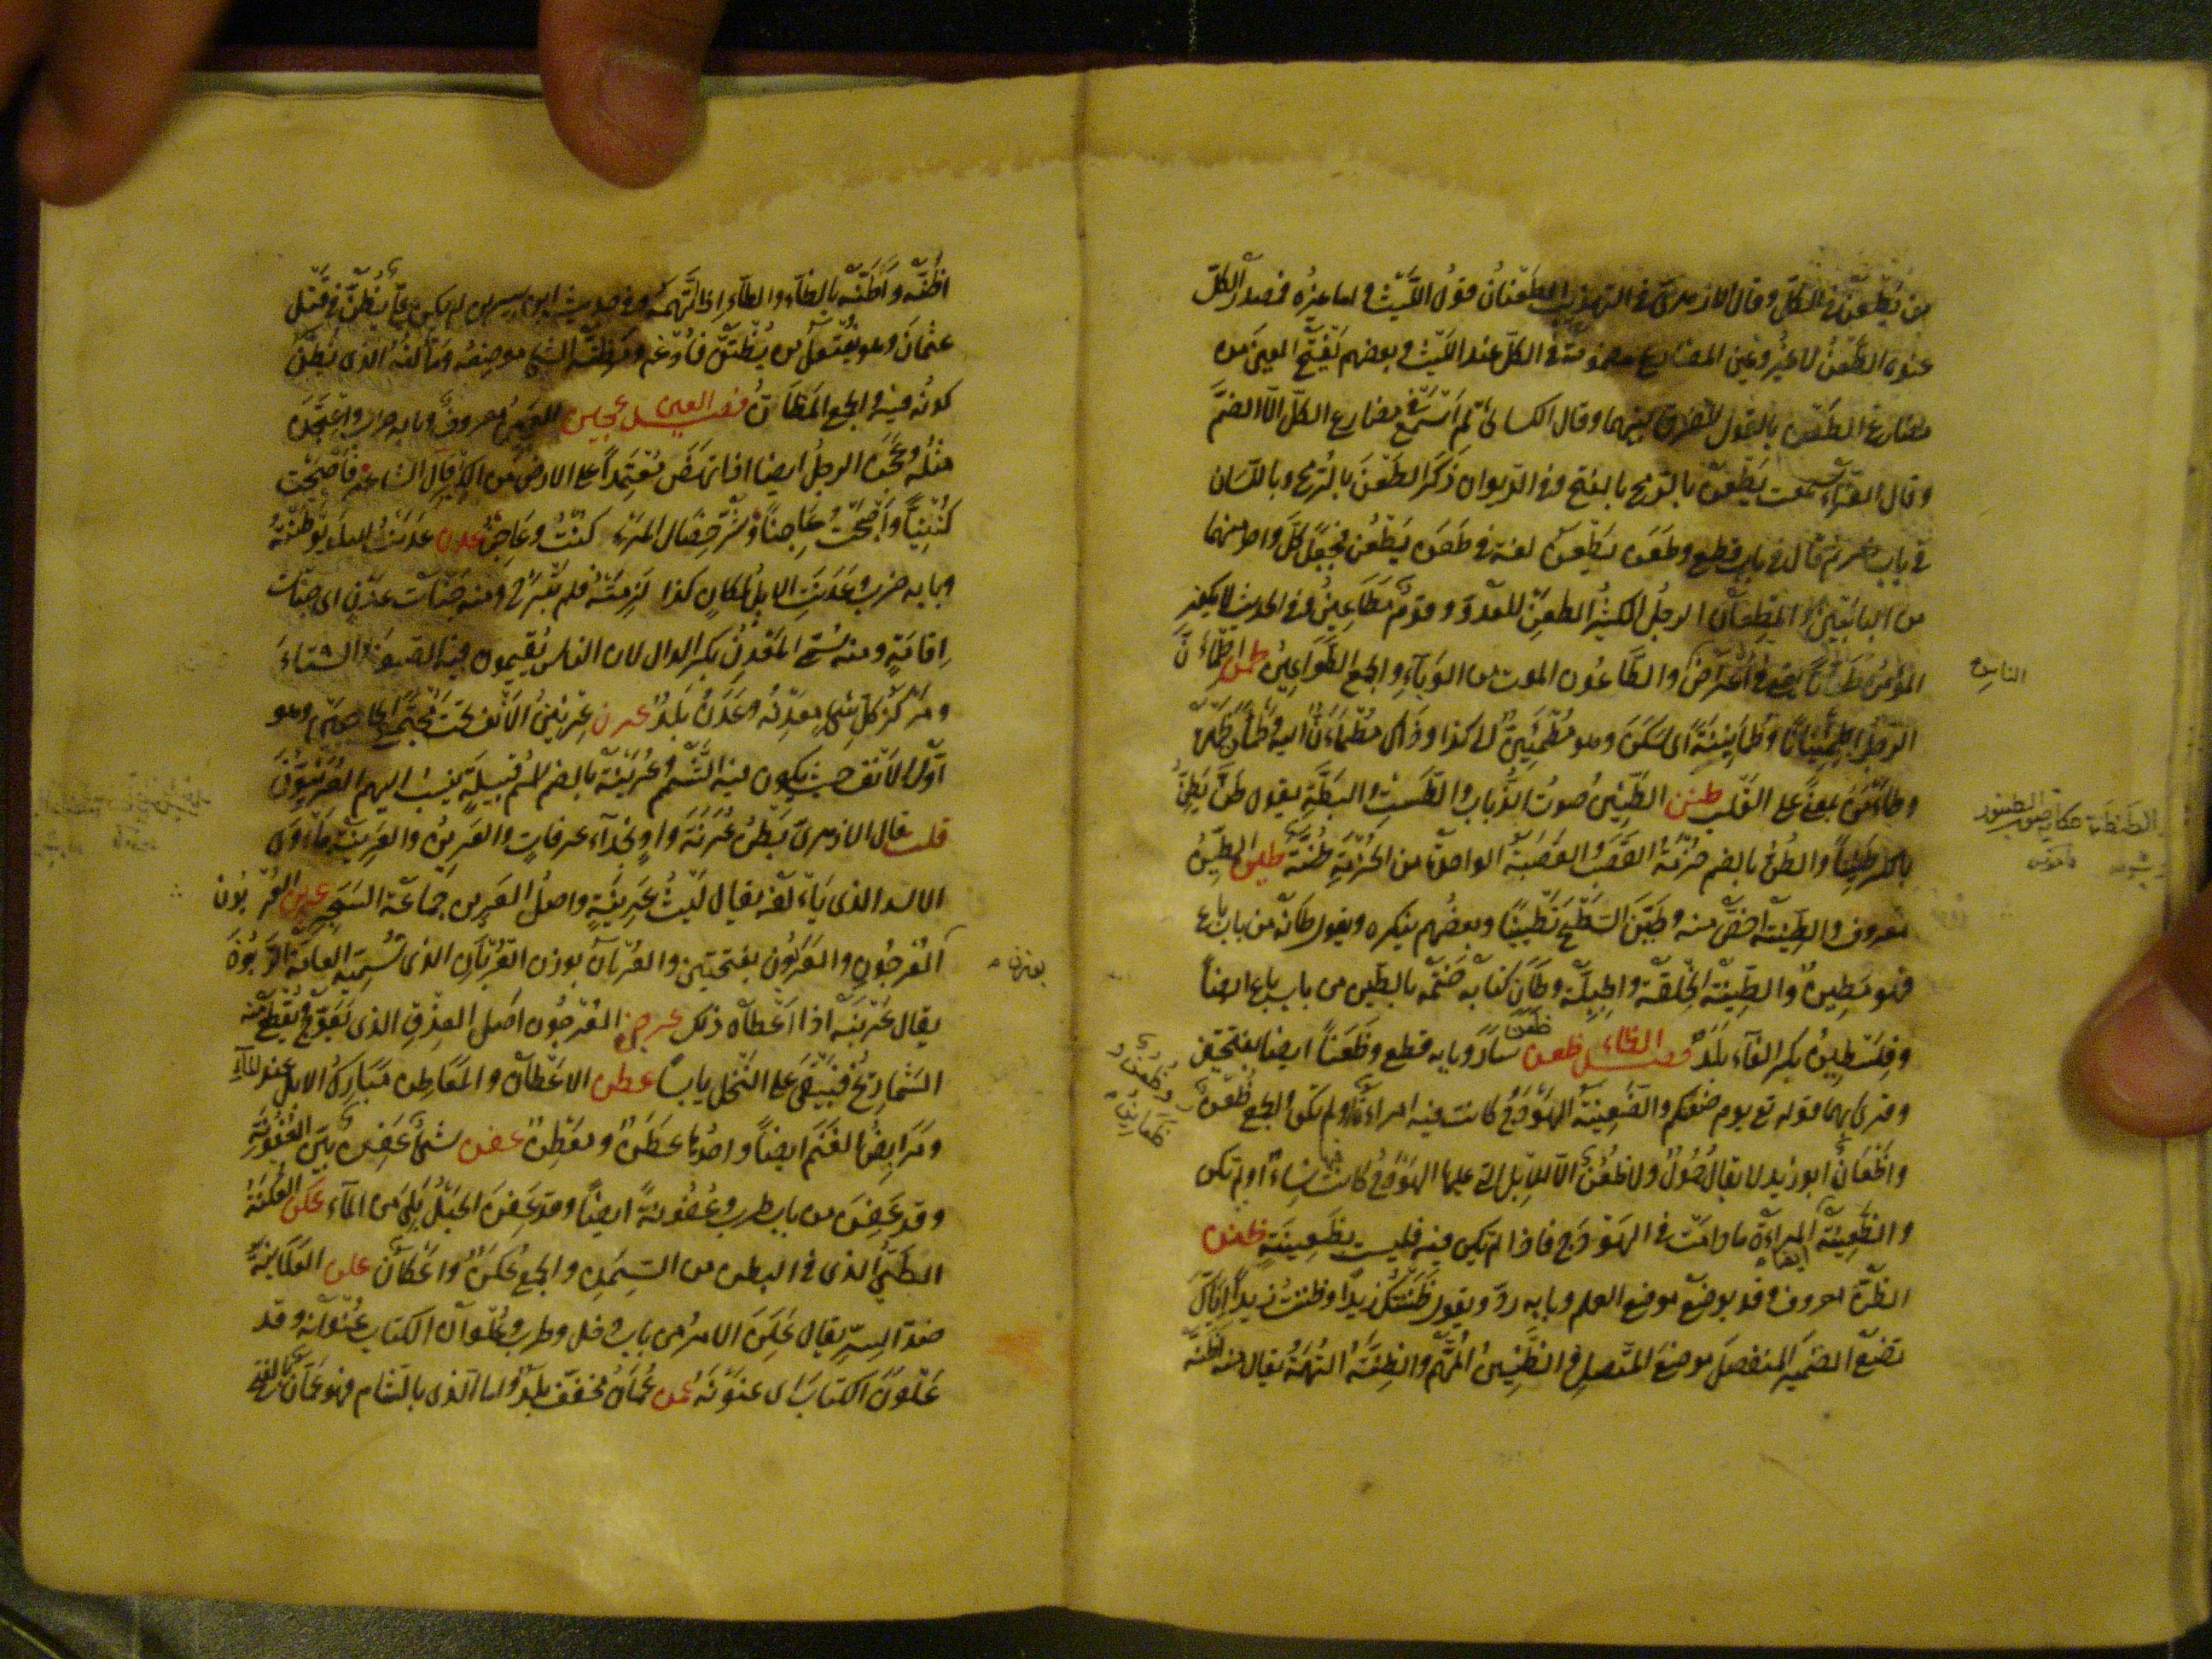 من يطعن في الكل وقال الازهري في التهذيب الطعنان قول الليث واما غيره فمصدر الكل
عنده الطعن لا غير وعين المضارع مضمومة في الكل عند الليث وبعضهم يفتح العين من
مضارع الطعن بالقول للفرق بينهما وقال الكسائي لم اسمع في مضارع الكل الا الضم
وقال الفراء سمعت يطعن بالرمح بالفتح وفي الديوان ذكر الطعن بالرمح وباللسان
في باب نصر ثم قال في باب قطع وطعن يطعن لغة في طعن يطعن فجعل كل واحد منهما
من البابين والمطعان الرجل الكثير الطعن للعدو وقوم مطاعين وفي الحديث لا يكون
المؤمن طعانا يعني في اعراض والطاعون الموت من الوباء والجمع الطواعين طمن اطمأن
الناس
الرجل اطمئنانا وطمأنينة اي سكن وهو مطمئن الى كذا وذاك مطمأن اليه وطمأن ظهره
وطأمنه بمعنى على القلب طنن الطنين صوت الذباب والطست والبطة يقول طن يطن
الطنطنة حكاية صوت الطنبور
بالكسر طنينا والطن بالضم حزمة القصب والقصبة الواحدة من الحزمة طنة طين الطين
معروف والطينة اخص منه وطين السطح تطيينا وبعضهم ينكره ويقول طانه من باب باع
فهو مطين والطينة الخلقة والجبلة وطان كتابه ختمه بالطين من باب باع ايضا
وفلسطين بكسر الفاء بلد فصل الظاء ظعن ظعن سار وبابه قطع وظعنا ايضا بفتحتين
وقرئ بهما قوله تع يوم ضعنكم والضعينة الهودج كانت فيه امرأة او لم تكن والجمع ظعن
وظعن و ظعائن
واظعان ابو زيد لا يقال حمول ولا ظعن الا للابل التي عليها الهودج كانت فيها نساء او لم تكن
والظعينة المرأة ما دامت في الهودج فاذا لم تكن فيه فليست بظعينة ظنن
الظن معروف وقد يوضع موضع العلم وبابه رد ويقول ظننتك زيدا وظننت زيدا اياك
تضع الضمير المنفصل موضع المتصل والظنين المتهم والظنة التهمة يقال منه اظنه
اظنه واطنه بالظاء والطاء اذا اتهمه وفي حديث ابن سيرين لم يكن علي يظن في قتل
عثمان وهو يفتعل من يظتن فادغم ومظنة الشئ موضعه ومألفه الذي يظن
كونه فيه والجمع المظان فصل العين عجن العجين معروف وبابه ضرب واعتجن
مثله وعجن الرجل ايضا اذا نهض معتمدا على الارض من الكبر قال الشاعر فاصبحت
كنتيا واصبحت عاجنا وشر خصال المرء كنت وعاجن عدن عدنت البلد توطنته
وبابه ضرب وعدنت الابل لمكان كذا لزمته فلم تبرح ومنه جنات عدن اي جنات
اقامة ومنه سمي المعدن بكسر الدال لان الناس يقيمون فيه الصيف والشتاء
ومركز كل شئ معدنه وعدن بلد عرن عرنين الانف تحت مجتمع الحاجبين وهو
اول الانف حيث يكون فيه الشمم وعرينة بالضم اسم قبيلة ينسب اليهم العرنيون
قلت قال الازهري بطن عرنة واد بحذاء عرفات والعرين والعرينة مأوى
الاسد الذي يألفه يقال ليث عرينة واصل العرين جماعة الشجر عربن العربون
العرجون والعربون بفتحتين والعربان بوزن القربان الذي تسميه العامة الربون
بوزن
يقال عربنه اذا اعطاه ذلك عرجن العرجون اصل العذق الذي يعوج ويقطع منه
الشماريخ فيبقى على النخل يابسا عطن الاعطان والمعاطن مبارك الابل عند الماء
ومرابض الغنم ايضا واحدها عطن ومعطن عفن شئ عفن بين العفونة
وقد عفن من باب طرب وعفونة ايضا وقد عفن الحبل بلي من الماء عكن العكنة
الطي الذي في البطن من السمن والجمع عكن واعكان علن العلانية
ضد السر يقال علن الامر من باب دخل وطرب وعلوان الكتاب عنوانه وقد
علون الكتاب اي عنونه عمن عمان مخفف بلد واما الذي بالشام فهو عمان